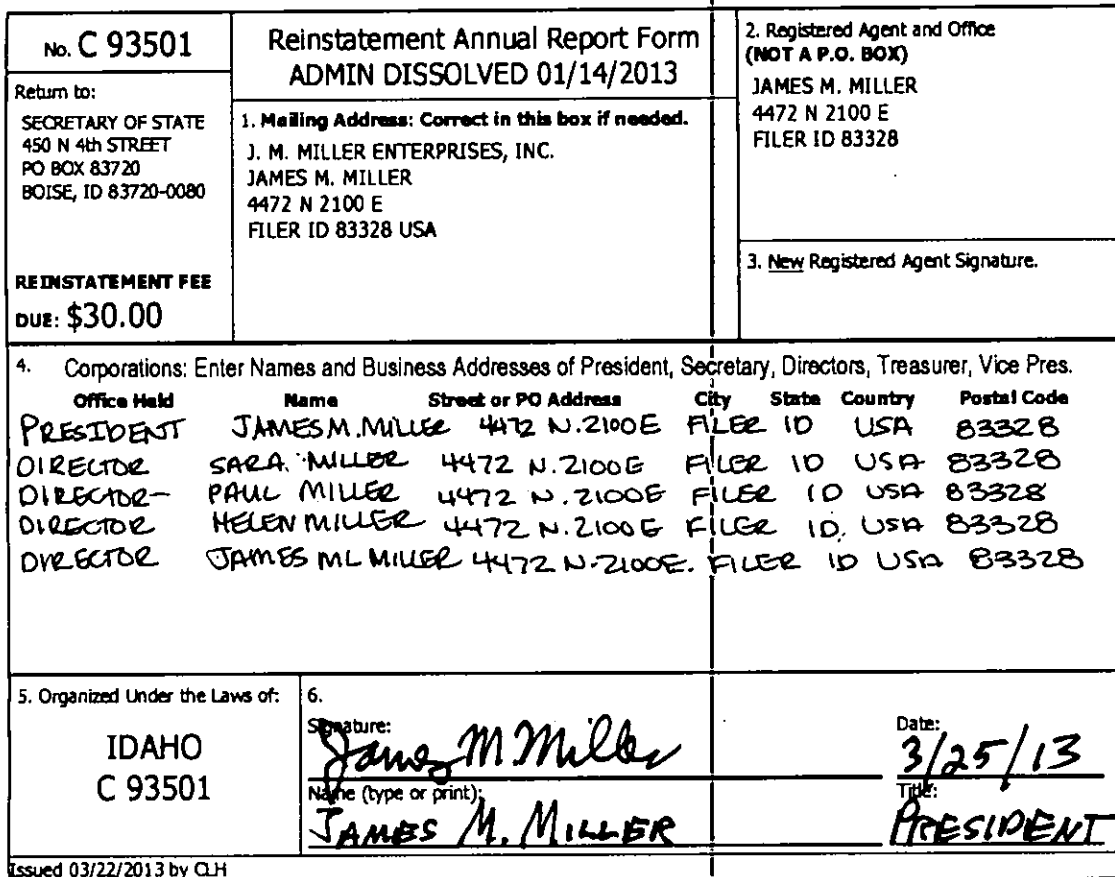 No. C 93501
Return to:
SECRETARY OF STATE
450 N 4th STREET
PO BOX 83720
BOISE, ID 83720-0080
REINSTATEMENT FEE
DUE: $30.00
Reinstatement Annual Report Form
ADMIN DISSOLVED 01/14/2013
1. Mailing Address: Correct in this box if needed.
J. M. MILLER ENTERPRISES, INC.
JAMES M. MILLER
4472 N 2100 E
FILER ID 83328 USA
2. Registered Agent and Office
(NOT A P.O. BOX)
JAMES M. MILLER
4472 N 2100 E
FILER ID 83328
3. New Registered Agent Signature.
4. Corporations: Enter Names and Business Addresses of President, Secretary, Directors, Treasurer, Vice Pres.
Office Held Name Street or PO Address City State Country Postal Code
PRESIDENT JAMES M. MILLER 4472 N. 2100 E FILER ID USA 83328
DIRECTOR SARA MILLER 4472 N. 2100 E FILER ID USA 83328
DIRECTOR PAUL MILLER 4472 N. 2100 E FILER ID USA 83328
DIRECTOR HELEN MILLER 4472 N. 2100 E FILER ID USA 83328
DIRECTOR JAMES ML MILLER 4472 N. 2100 E. FILER ID USA 83328
5. Organized Under the Laws of:
IDAHO
C 93501
6.
Signature:
James M Miller
Date:
3/25/13
Name (type or print):
JAMES M. MILLER
Title:
PRESIDENT
Issued 03/22/2013 by CLH